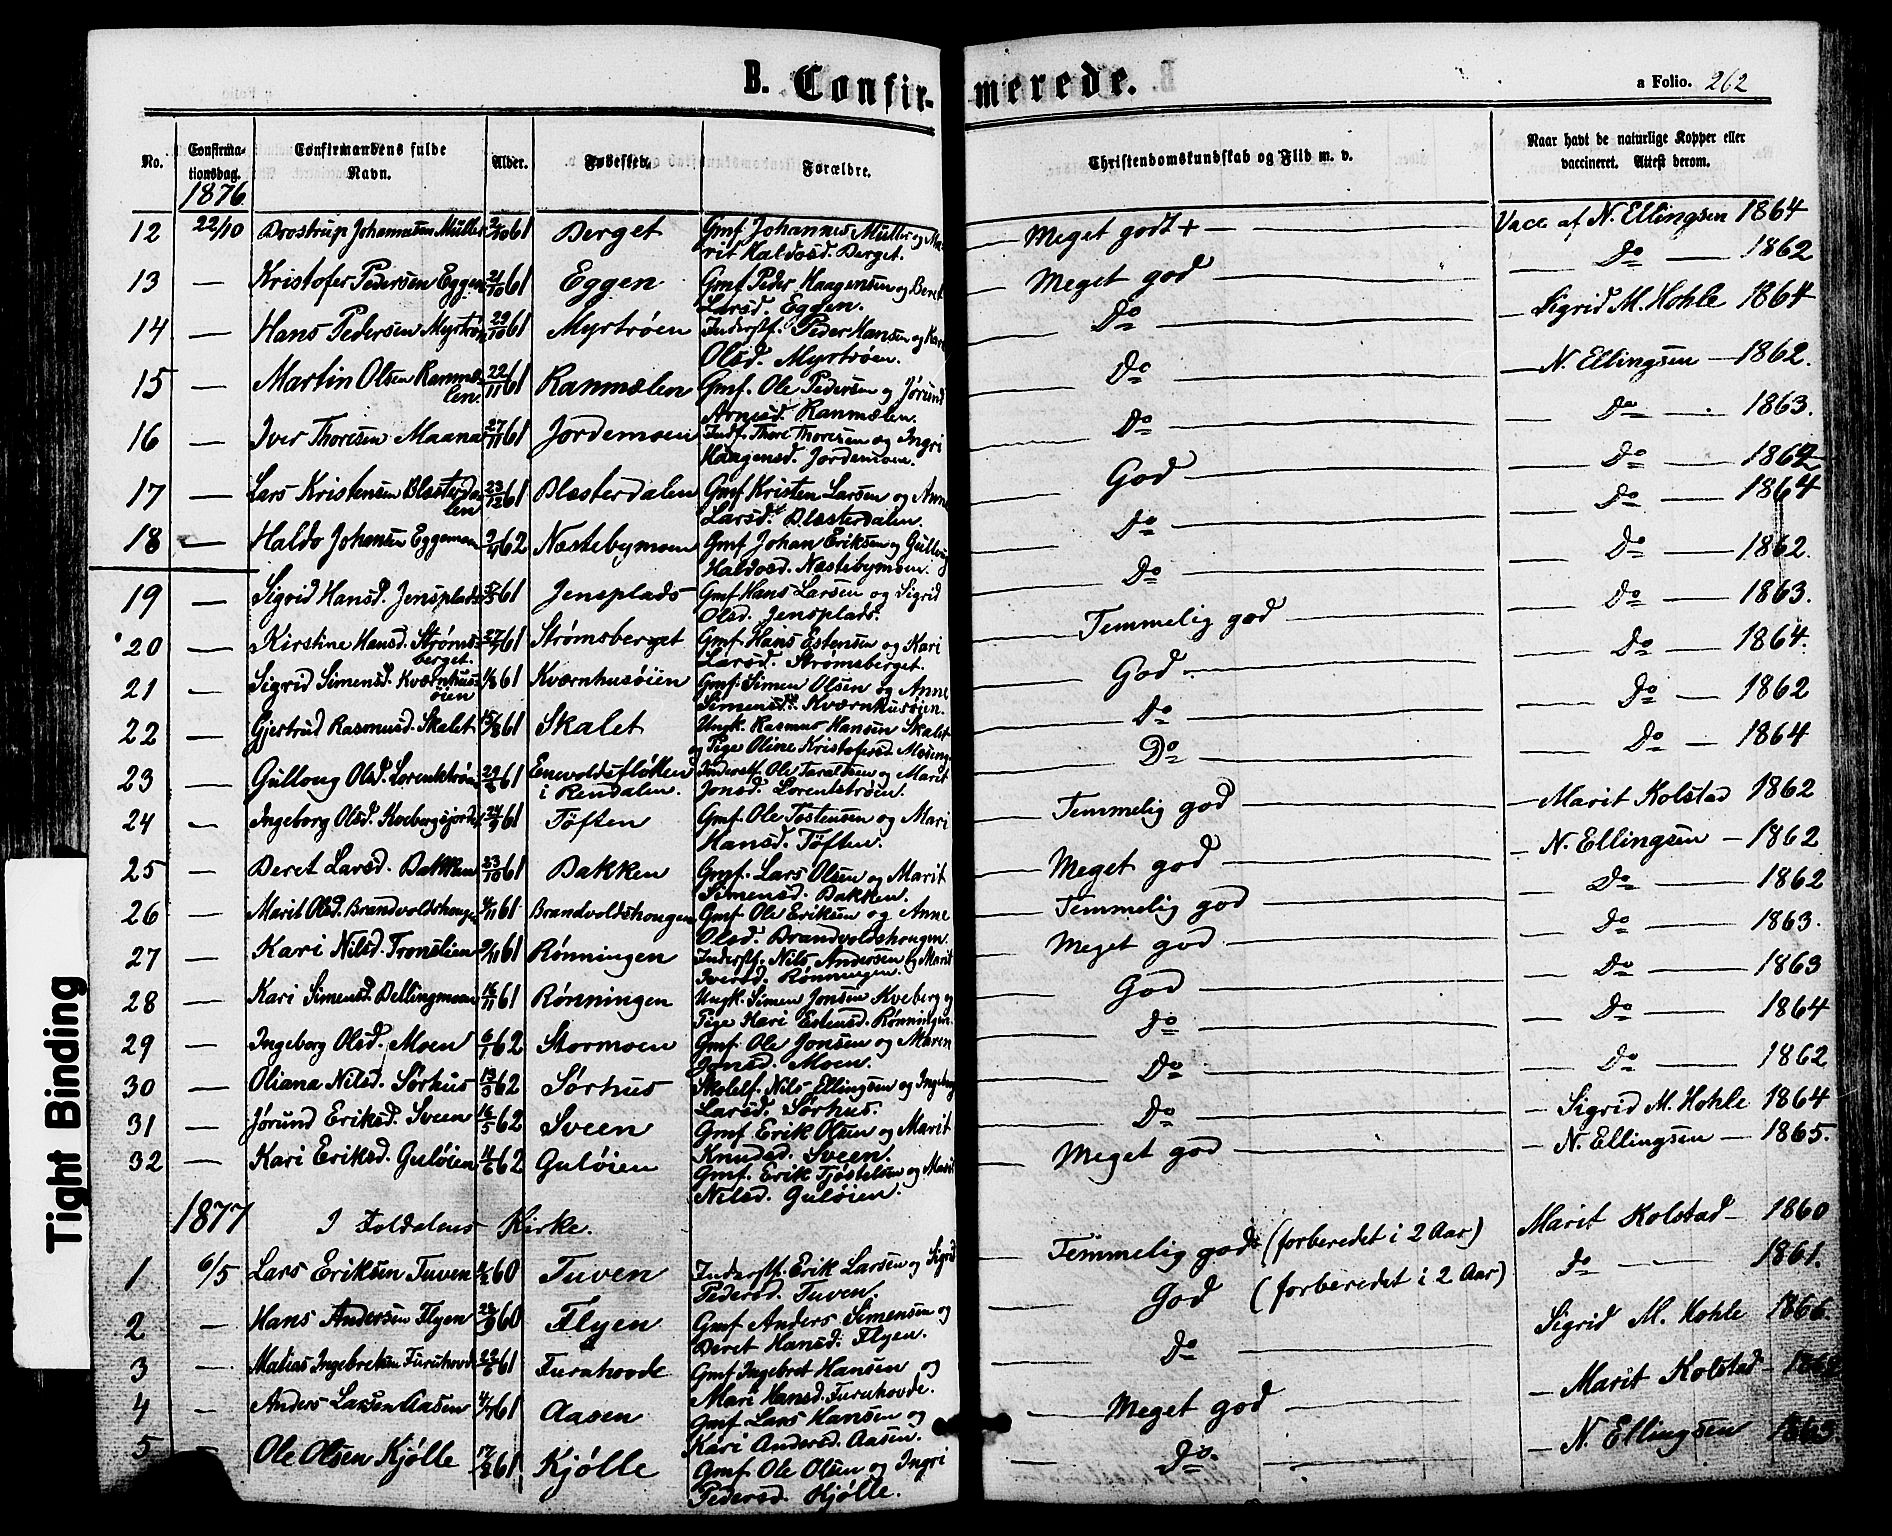 B. Confir-
merede.
a Folio. 262
No.
Confirma-
tionsdag.
Confirmandens fulde
Navn.
Alder.
Fødested.
Forældre.
Christendomskundskab og Flid m. v.
Naar havt de naturlige Kopper eller
vaccineret. Attest derom.
1876.
12 22/10 Brostrup Johannesen Müller 2/10 61 Berget Gmf Johannes Müller og Ma- Meget godt + Vacc af N. Ellingsen 1864
rit Haldosd. Berget.
13 — Kristofer Pedersen Eggen 21/10 61 Eggen Gmf Peder Haagensen og Beret Meget god — Do — 1862
Larsd. Eggen.
14 — Hans Pedersen Myrtrøen 29/10 61 Myrtrøen Inderst. Peder Hansen og Kari Do — Sigrid M. Hohle 1864
Olsd. Myrtrøen.
15 — Martin Olsen Ranmæ- 22/11 61 Ranmælen Gmf. Ole Pedersen og Jørund Do — N. Ellingsen — 1862.
len. Arnesd. Ranmælen.
16 — Iver Thoresen Maana 27/11 61 Jordemoen Indf. Thore Thoresen og Ingri Do — Do — 1863.
Haagensd. Jordemoen.
17 — Lars Kristensen Blæsterda- 23/12 61 Blæsterdalen Gmf Kristen Larsen og Anne God — Do — 1862
len Larsd. Blæsterdalen.
18 — Haldo Johansen Eggemoen 62 Næstebymoen Gmf Johan Eriksen og Gullaug Do — Do — 1864
Haldosd. Næstebymoen.
19 — Sigrid Hansd. Jensplads 61 Jensplads Gmf Hans Larsen og Sigrid Do — Do — 1862.
Olsd. Jensplads.
20 — Kirstine Hansd. Strøms- 61 Strømsberget Gmf Hans Estensen og Kari Temmelig god — Do — 1863.
berget. Larsd. Strømsberget.
21 — Sigrid Simensd. Kværnhus- 61 Kværnhusøien Gmf. Simen Olsen og Anne God — Do — 1864.
øien Simensd. Kværnhusøien.
22 — Gjertrud Rasmusd. Skalet 61 Skalet Ungk. Rasmus Hansen Skalet Do — Do — 1862
og Pige Oline Kristofersd. Mæsing
23 — Gullong Olsd. Lorentstrøen 61 Enevoldsfløtten Inderst. Ole Taraldsen og Marit Do — Do — 1864
i Rendalen. Jonsd. Lorentstrøen.
24 — Ingeborg Olsd. Kvebergsjordet 61 Tøften Gmf. Ole Tostensen og Mari Temmelig god — Marit Kolstad 1862
Hansd. Tøften.
25 — Beret Larsd. Bakken 23/10 61 Bakken Gmf. Lars Olsen og Marit Meget god — N. Ellingsen — 1862
Simensd. Bakken.
26 — Marit Olsd. Brandvoldshougen 61 Brandvoldshougen Gmf Ole Eriksen og Anne Temmelig god — Do — 1862
Olsd. Brandvoldshougen.
27 — Kari Nilsd. Tronslien 61 Rønningen Inderst. Nils Andersen og Marit Meget god — Do — 1863.
Iversd. Rønningen.
28 — Kari Simensd. Bellingmoen 16/11 61 Rønningen Ungk. Simen Jonsen Kveberg og God — Do — 1863
Pige Kari Estensd. Rønningen.
29 — Ingeborg Olsd. Moen 6/1 62 Stormoen Gmf. Ole Jonsen og Maren Do — Do — 1864
Jonsd. Moen.
30 — Oliana Nilsd. Sørhus 13/3 62 Sørhus Skolelf. Nils Ellingsen og Ingeborg Do — Do — 1862
Larsd. Sørhus.
31 — Jørund Eriksd. Sveen 16/5 62 Sveen Gmf Erik Olsen og Marit Do — Sigrid M. Hohle 1864
Knudsd. Sveen.
32 — Kari Eriksd. Guløien 62 Guløien Gmf. Erik Tjøstelsen og Marit Meget god — N. Ellingsen — 1865.
Nilsd. Guløien.
1877 I Foldalens Kirke.
1 6/5 Lars Eriksen Tuven 60 Tuven Inderst. Erik Larsen og Sigrid Temmelig god (forberedet i 2 Aar) Marit Kolstad 1860
Pedersd. Tuven.
2 — Hans Andersen Flyen 60 Flyen Gmf Anders Simensen og God (forberedet i 2 Aar) do — 1861.
Beret Hansd. Flyen.
3 — Matias Ingebretsen Furuhovde 61 Furuhovde Gmf Ingebret Hansen og Do — Sigrid M. Hohle 1866.
Mari Hansd. Furuhovde.
4 — Anders Larsen Aasen 4/7 61 Aasen Gmf. Lars Hansen og Meget god — Marit Kolstad
Kari Andersd. Aasen.
5 — Ole Olsen Kjølle 17/8 61 Kjølle Gmf. Ole Olsen og Ingri Do. — N. Ellingsen 1863.
Pedersd. Kjølle.
Tight Binding